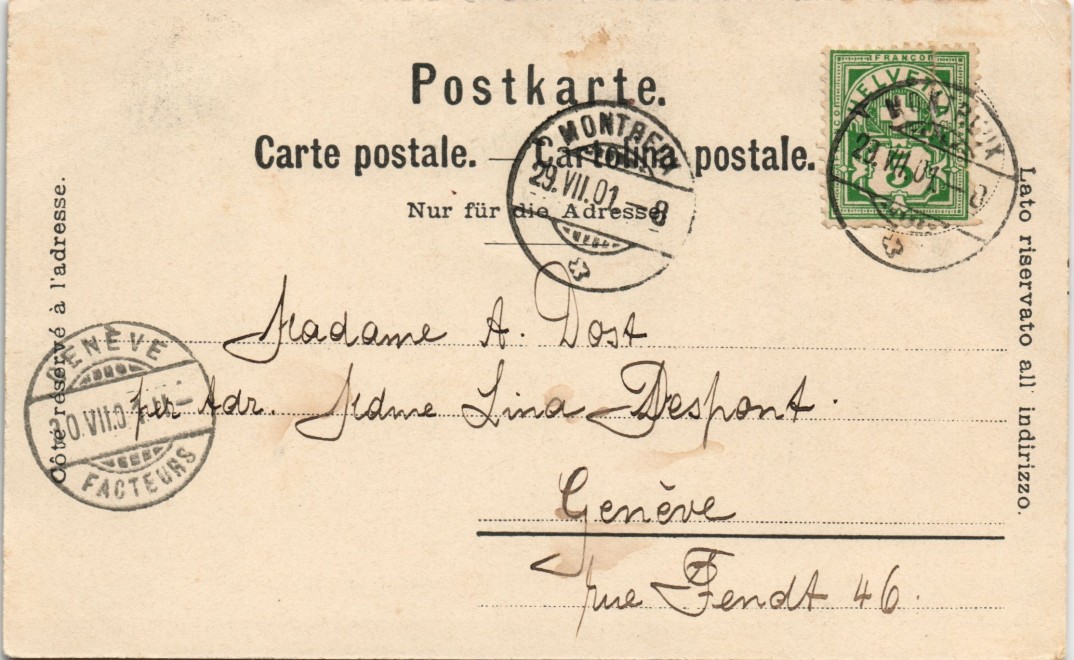 Postkarte.
Carte postale. — Cartolina postale.
Nur für die Adresse.
Côté réservé à l'adresse.
Lato riservato all' indirizzo.
FRANCO
HELVETIA
5
29.VII.01.-8
29.VII.01.-8
GENÈVE
FACTEURS
Madame A. Dost
per Adr. Mdme Lina Despont.
Genève
rue Fendt 46.